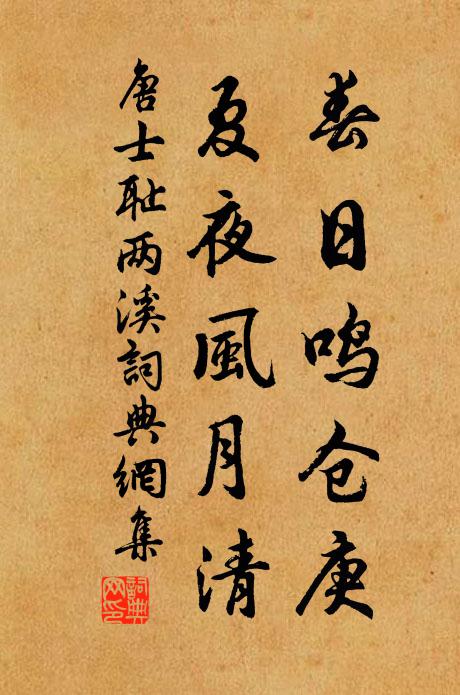 春日鸣仓庚
夏夜風月清
唐士耻两溪詞典網集
詞典
网印